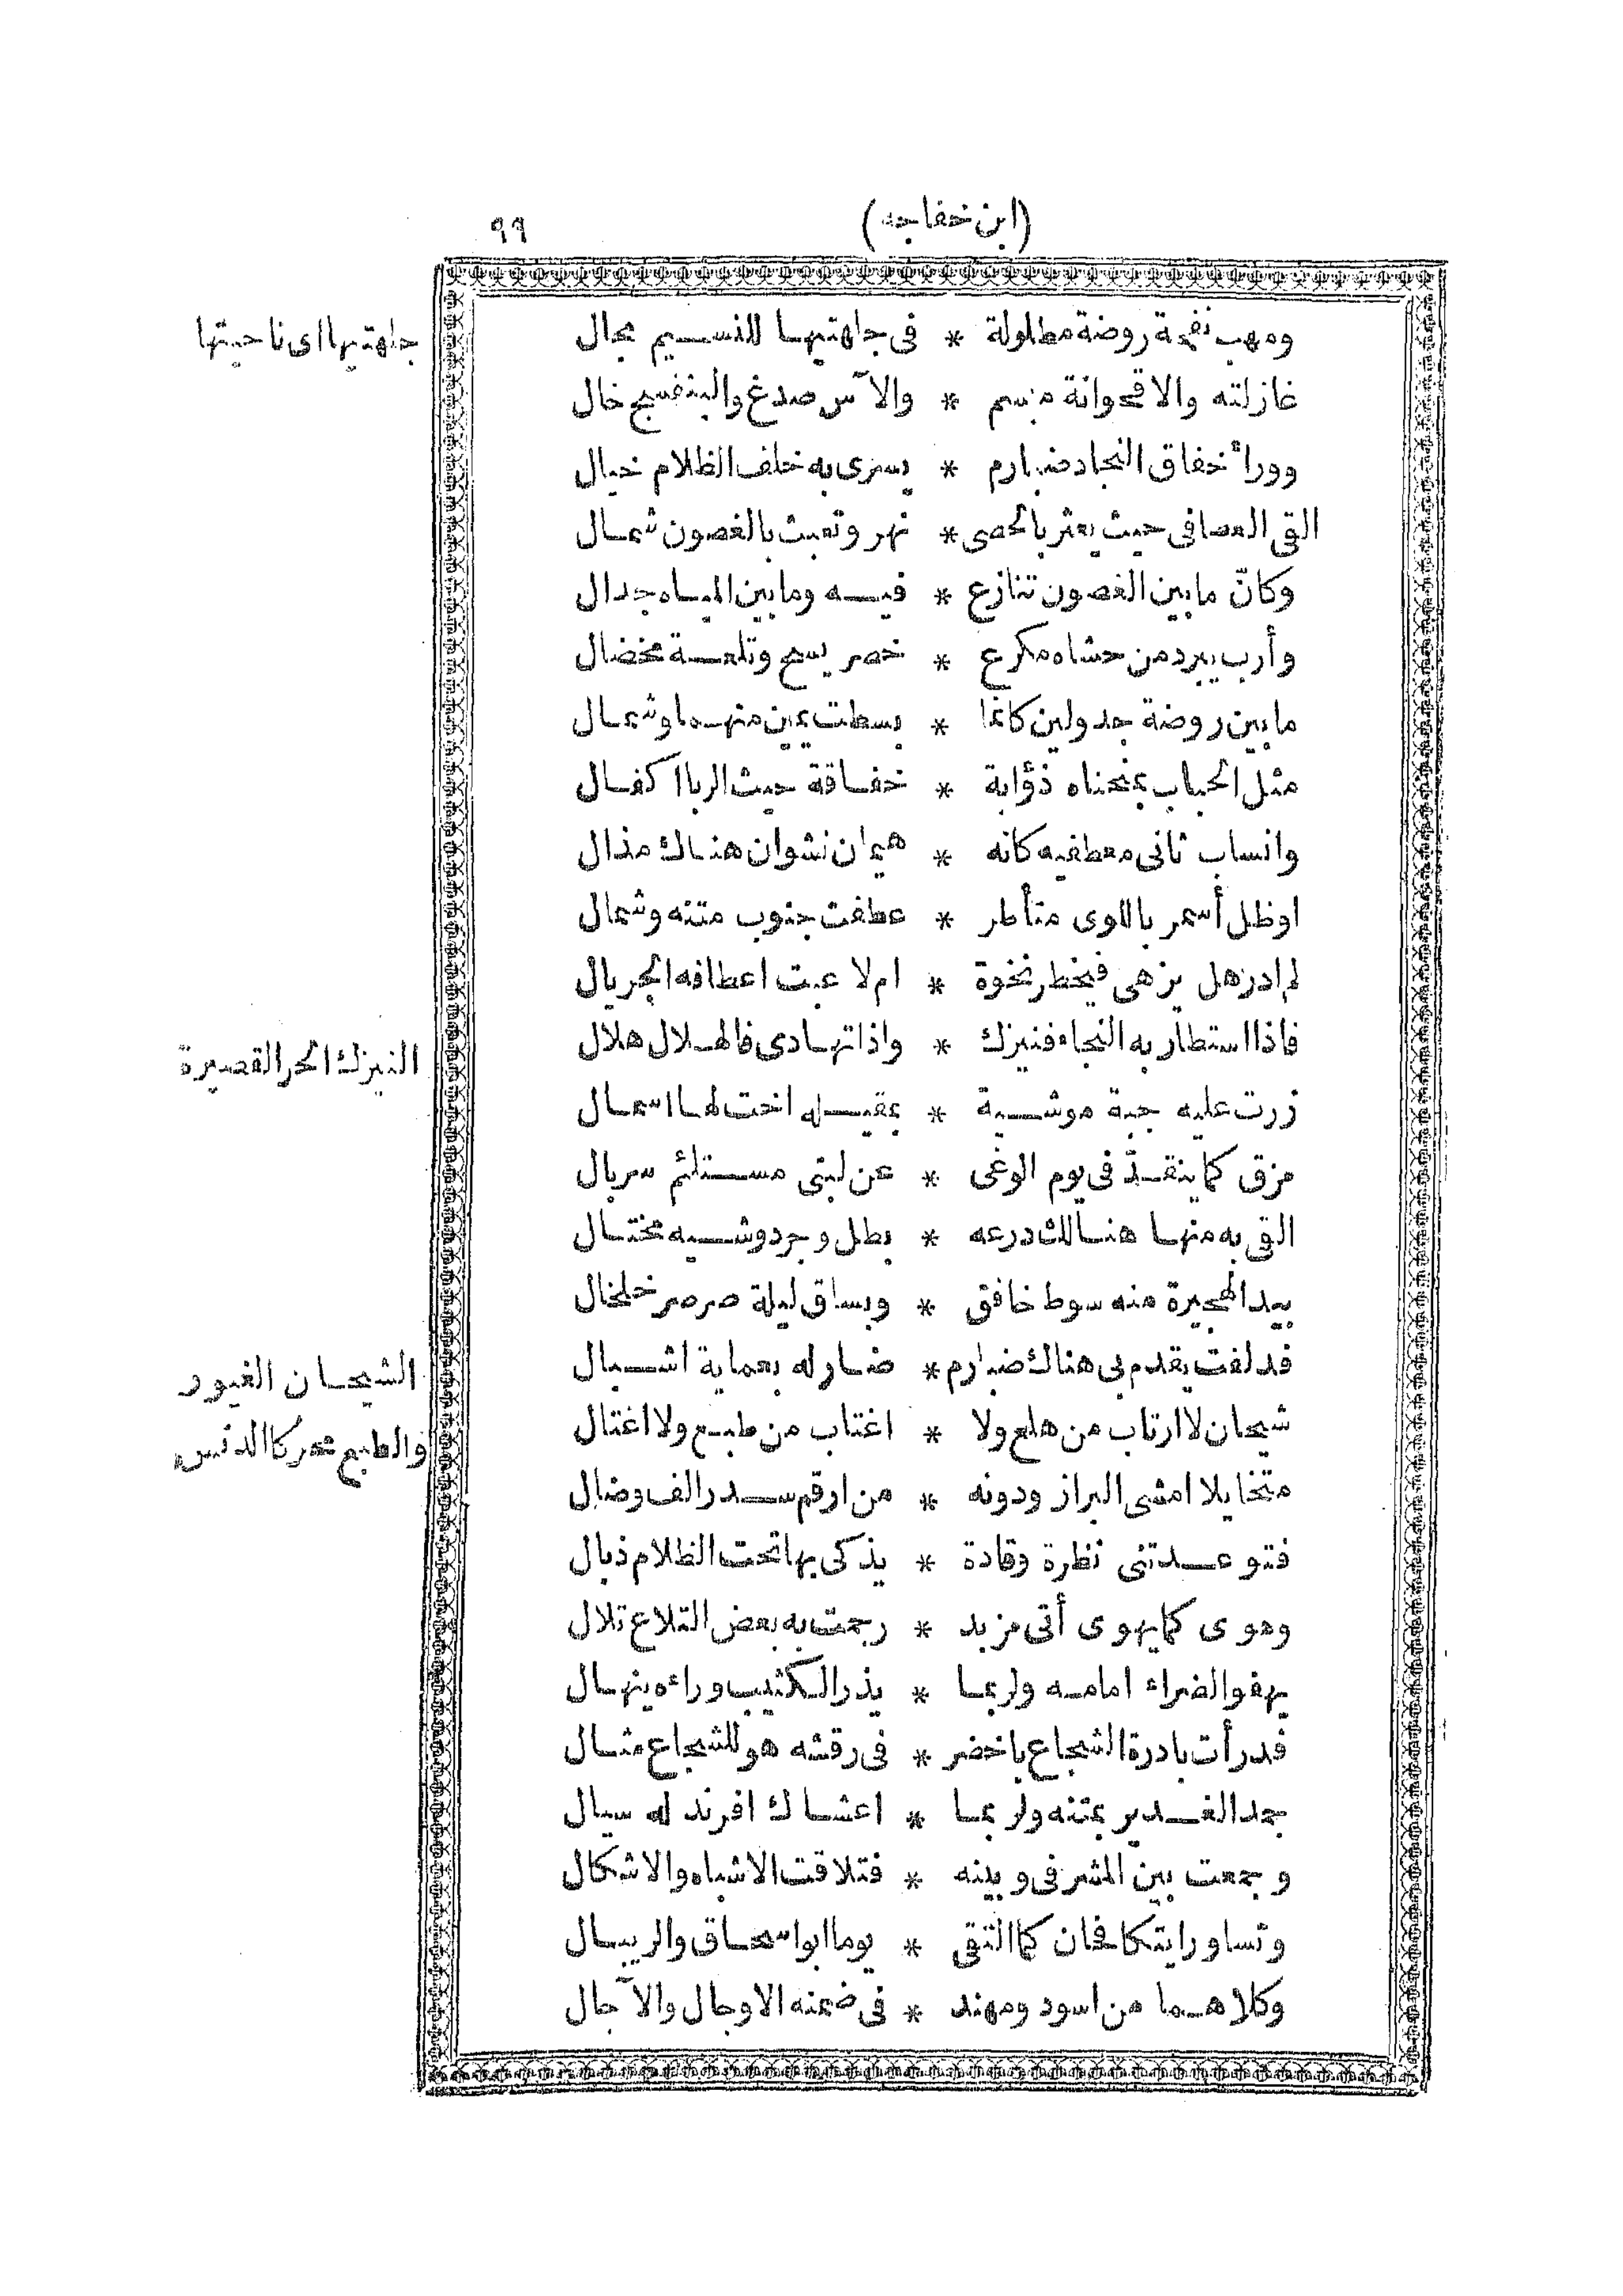 (ابن خفاجه) ٩٩
ومهب نفحة روضة مطلولة * فى جلهتيها للنسيم مجال
جلهتيها اى ناحيتها
غازلته والاقحوانة مبسم * والآس صدغ والبنفسج خال
ووراء خفاق النجاد ضبارم * يسرى به خلف الظلام خيال
القى العصا فى حيث يعثر بالحصى * نهر وتعبث بالغصون شمال
وكانّ ما بين الغصون تنازع * فيه وما بين المياه جدال
وأرب يبرد من حشاه مكرع * خصر يسح وتلعة مخضال
ما بين روضة جدولين كانما * بسطت يمين منهما وشمال
مثل الحباب بمنحناه ذؤابة * خفاقة حيث الربا اكفال
وانساب ثانى معطفيه كانه * هيمان نشوان هناك مذال
اوظل أسمر باللوى متأطر * عطفت جنوب متنه وشمال
لم ادر هل يزهى فيخطر نخوة * ام لاعبت اعطافه الجريال
فاذا استطار به النجاء فنيزك * واذا تهادى فالهلال هلال
النيزك الحر القصيرة
زرت عليه جبة موشية * بمقيله اخت لها اسمال
مزق كما ينقدّ فى يوم الوغى * عن لبتى مستلئم سربال
القى به منها هنالك درعه * بطل وجر دوشيه مختال
بيد الهجيرة منه سوط خافق * وبساق ليلة صرصر خلخال
فدلفت يقدم بى هناك ضبارم * ضار له بعماية اشبال
الشيحان الغيور
شيحان لا ارتاب من هلع ولا * اغتاب من طبع ولا اغتال
والطبع محركا الدنس
متخايلا امشى البراز ودونه * من ارقم سدر الف وضال
فتوعدتنى نظرة وقادة * يذكى بها تحت الظلام ذبال
وهوى كما يهوى أتى مزبد * رجمت به بعض التلاع تلال
يهفو الضراء امامه ولربما * يذر الكثيب وراءه ينهال
فدرأت بادرة الشجاع باخضر * فى رقشه هو للشجاع مثال
جمد الغدير بمتنه ولربما * اعشاك افرند له سيال
وجمعت بين المشرفى وبينه * فتلاقت الاشباه والاشكال
وتساورا يتكافحان كما التقى * يوما ابواسحاق والريبال
وكلاهما من اسود ومهند * فى ضمنه الاوجال والآجال